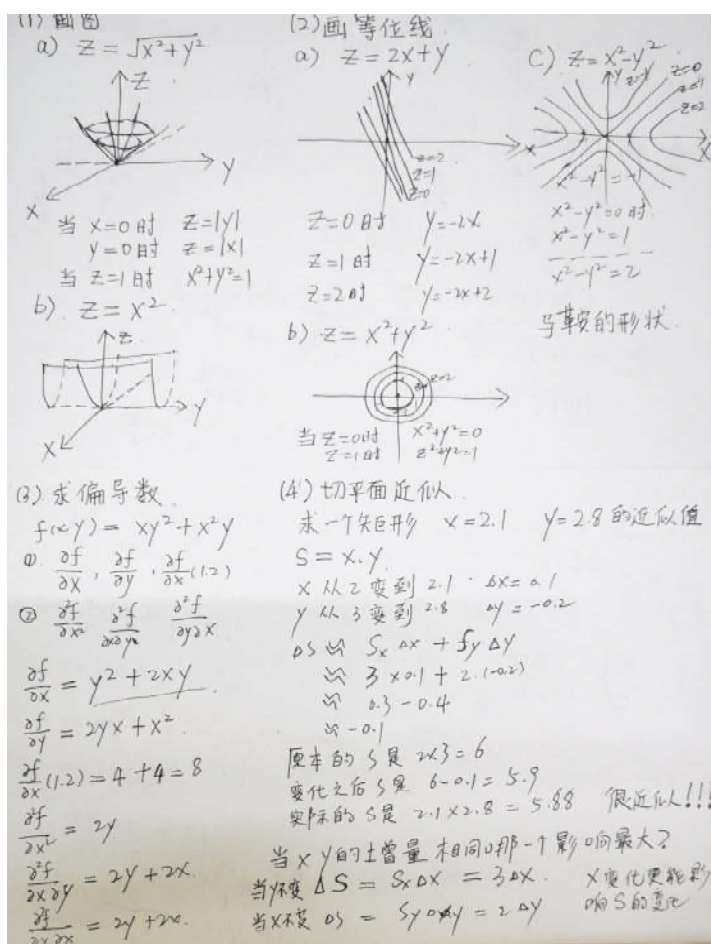 (1) 画图
a) Z = √x²+y²
Z
Y
X
当 x=0时 Z=|y|
y=0时 Z=|x|
当 Z=1时 x²+y²=1
b). Z = x²
Z
Y
X
(2) 画等位线.
a) Z = 2x+y
Y
X
Z=2
Z=1
Z=0
Z=0时 y=-2x
Z=1时 y=-2x+1
Z=2时 y=-2x+2
b) Z = x²+y²
Z=2
当Z=0时 x²+y²=0
Z=1时 z²+y²=1
C) Z = x²-y²
Y
Z=0
Z=1
Z=2
X
x²-y²=-1
x²-y²=0时
x²-y²=1
x²-y²=2
马鞍的形状.
(3). 求偏导数.
f(x y) = xy²+x²y
①. ∂f/∂x , ∂f/∂y , ∂f/∂x (1.2)
② ∂²f/∂x² ∂²f/∂x∂y ∂²f/∂y∂x
∂f/∂x = y²+2xy
∂f/∂y = 2yx+x².
∂f/∂x (1.2) = 4+4=8
∂²f/∂x² = 2y
∂²f/∂x∂y = 2y+2x.
= 2y+2x.
(4) 切平面近似.
求一个矩形 x=2.1 y=2.8 的近似值
S = x.y.
x 从2变到 2.1 . Δx=0.1
y 从 3 变到 2.8 Δy=-0.2
ΔS ≈ Sx Δx + fy Δy
≈ 3 x0.1 + 2.(-0.2)
≈ 0.3-0.4
≈ -0.1
原本的 S是 2x3=6
变化之后 S是 6-0.1=5.9
实际的 S是 2.1×2.8=5.88 很近似!!!
当 x y的增量相同哪一个影响最大?
当y不变 ΔS = SxΔx = 3Δx. x变化更能影
响S的变化
当x不变 ΔS = SyΔy = 2Δy